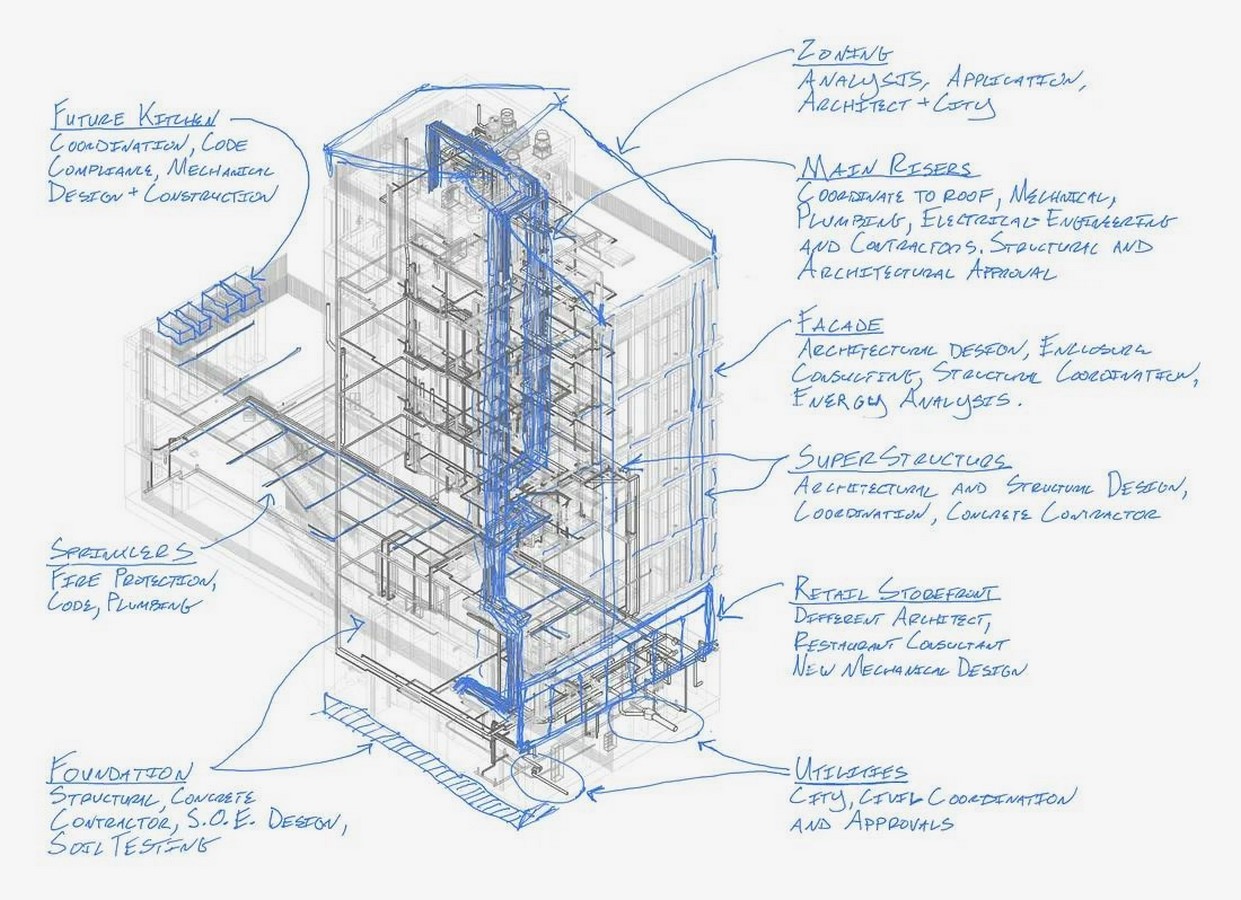 Zoning
Analysis, Application,
Architect + City
Future Kitchen
Coordination, Code
Compliance, Mechanical
Design + Construction
Main Risers
Coordinate to roof, Mechnical,
Plumbing, Electrical-Engineering
and Contractors. Structural and
Architectural Approval
Facade
Architectural Design, Enclosure
Consulting, Structural Coordination,
Energy Analysis.
Super Structure
Architectural and Structural Design,
Coordination, Concrete Contractor
Sprinklers
Fire Protection,
Code, Plumbing
Retail Storefront
Different Architect,
Restaurant Consultant
New Mechanical Design
Foundation
Structural, Concrete
Contractor, S.O.E. Design,
Soil Testing
Utilities
City, Civil Coordination
and Approvals